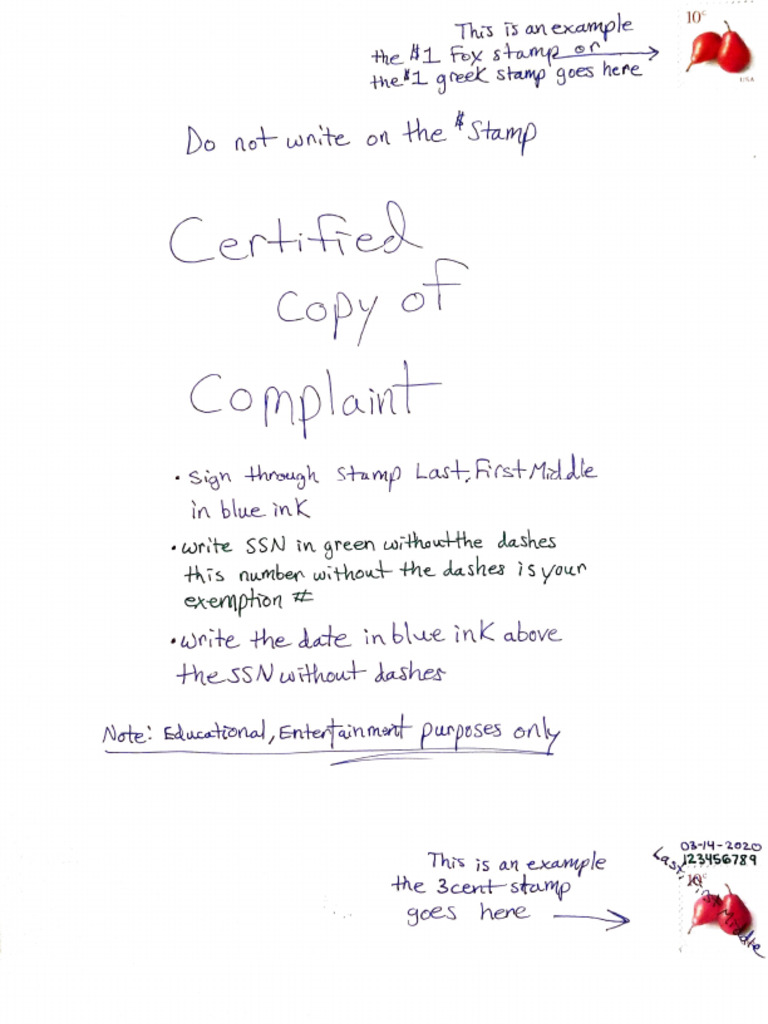 This is an example
the $1 Fox stamp or
the $1 greek stamp goes here
10c
USA
Do not write on the $ Stamp
Certified
copy of
Complaint
• Sign through Stamp Last, First Middle
in blue ink
• write SSN in green without the dashes
this number without the dashes is your
exemption #
• Write the date in blue ink above
the SSN without dashes
Note: Educational, Entertainment purposes only
03-14-2020
123456789
This is an example
the 3cent stamp
goes here
10c
Last, First Middle